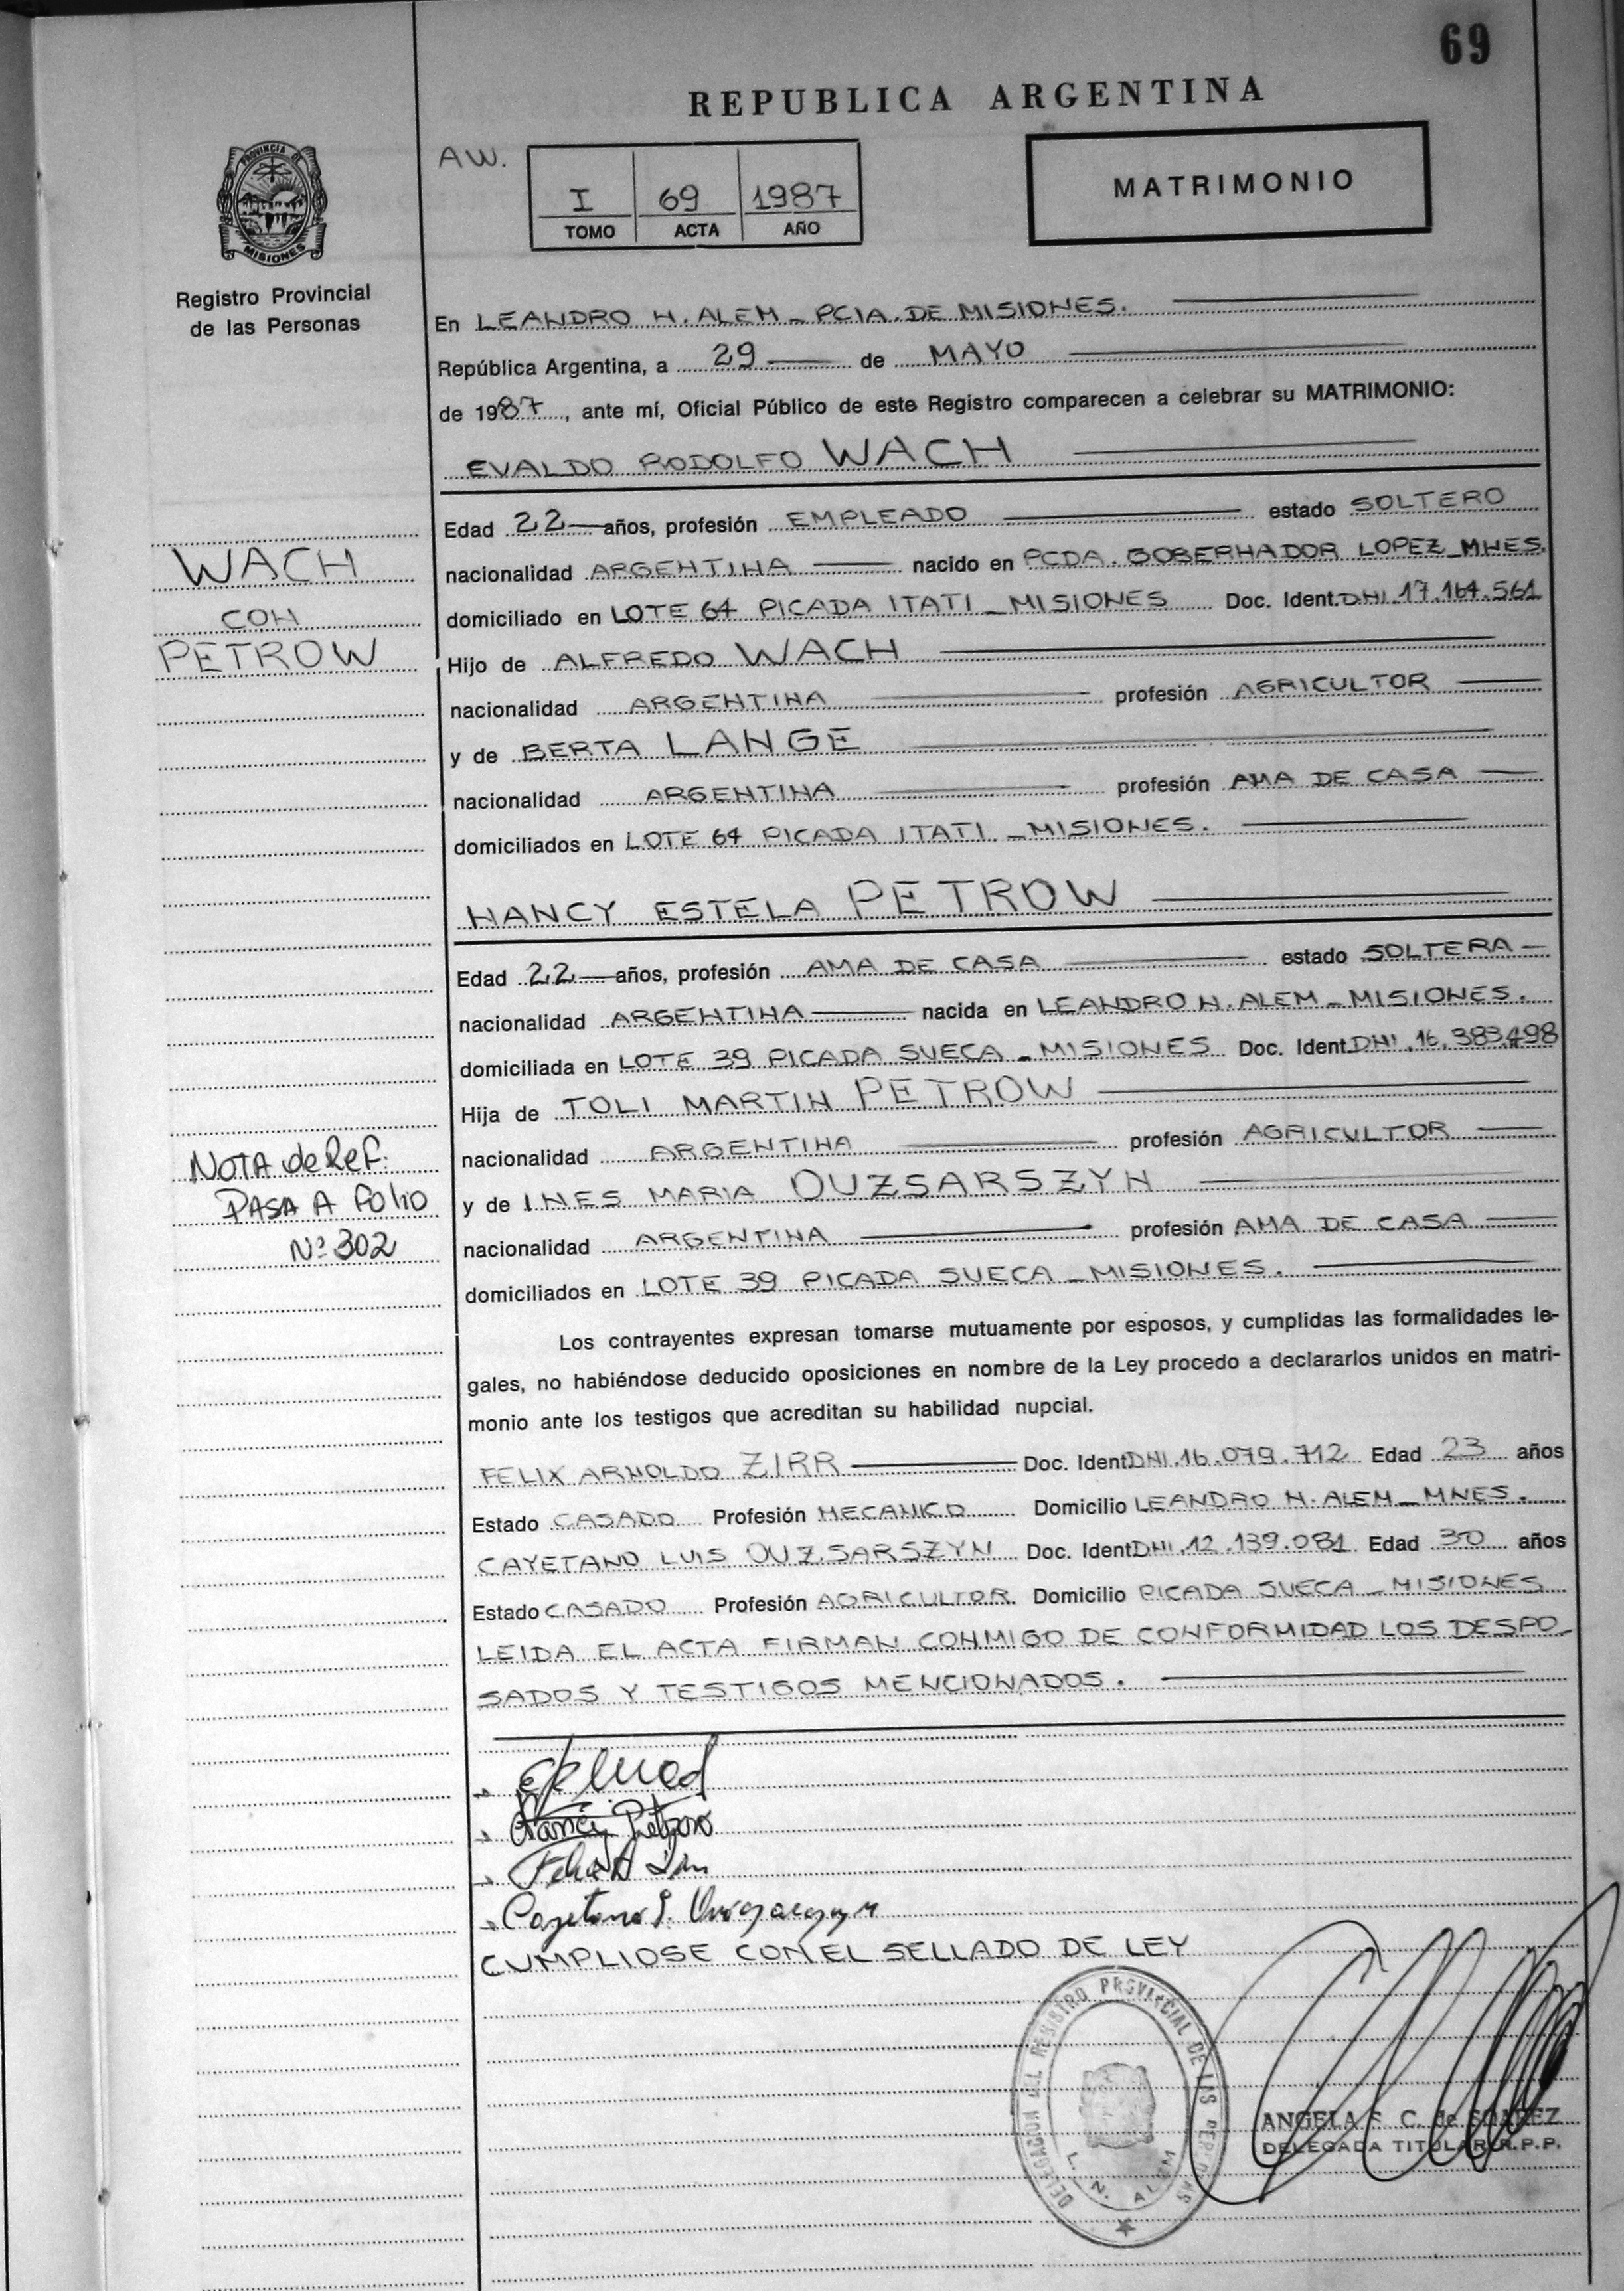 69
REPUBLICA ARGENTINA
AW.
I 69 1987
TOMO ACTA AÑO
MATRIMONIO
PROVINCIA DE
MISIONES
Registro Provincial
de las Personas
En LEANDRO N. ALEM - PCIA. DE MISIONES.
República Argentina, a 29 de MAYO
de 1987, ante mí, Oficial Público de este Registro comparecen a celebrar su MATRIMONIO:
EVALDO RODOLFO WACH
Edad 22 años, profesión EMPLEADO estado SOLTERO
WACH
CON
PETROW
nacionalidad ARGENTINA nacido en PCDA. GOBERNADOR LOPEZ - MNES.
domiciliado en LOTE 64 PICADA ITATI - MISIONES Doc. Ident. DNI. 17.164.561
Hijo de ALFREDO WACH
nacionalidad ARGENTINA profesión AGRICULTOR
y de BERTA LANGE
nacionalidad ARGENTINA profesión AMA DE CASA
domiciliados en LOTE 64 PICADA ITATI - MISIONES.
NANCY ESTELA PETROW
Edad 22 años, profesión AMA DE CASA estado SOLTERA
nacionalidad ARGENTINA nacida en LEANDRO N. ALEM - MISIONES.
domiciliada en LOTE 39 PICADA SUECA - MISIONES Doc. Ident. DNI. 16.383.498
Hija de TOLI MARTIN PETROW
nacionalidad ARGENTINA profesión AGRICULTOR
y de INES MARIA OUZSARSZYN
nacionalidad ARGENTINA profesión AMA DE CASA
domiciliados en LOTE 39 PICADA SUECA - MISIONES.
NOTA de Ref.
PASA A Folio
Nº 302
Los contrayentes expresan tomarse mutuamente por esposos, y cumplidas las formalidades le-
gales, no habiéndose deducido oposiciones en nombre de la Ley procedo a declararlos unidos en matri-
monio ante los testigos que acreditan su habilidad nupcial.
FELIX ARNOLDO ZIRR Doc. Ident. DNI. 16.079.712 Edad 23 años
Estado CASADO Profesión MECANICO Domicilio LEANDRO N. ALEM - MNES.
CAYETANO LUIS OUZSARSZYN Doc. Ident. DNI. 12.139.081 Edad 30 años
Estado CASADO Profesión AGRICULTOR. Domicilio PICADA SUECA - MISIONES
LEIDA EL ACTA FIRMAN CONMIGO DE CONFORMIDAD LOS DESPO-
SADOS Y TESTIGOS MENCIONADOS.
Nancy Petrow
Cayetano L.
CUMPLIOSE CON EL SELLADO DE LEY
DELEGACION DEL REGISTRO PROVINCIAL DE LAS PERSONAS
L. N. ALEM
ANGELA C. de SUAREZ
DELEGADA TITULAR R.P.P.